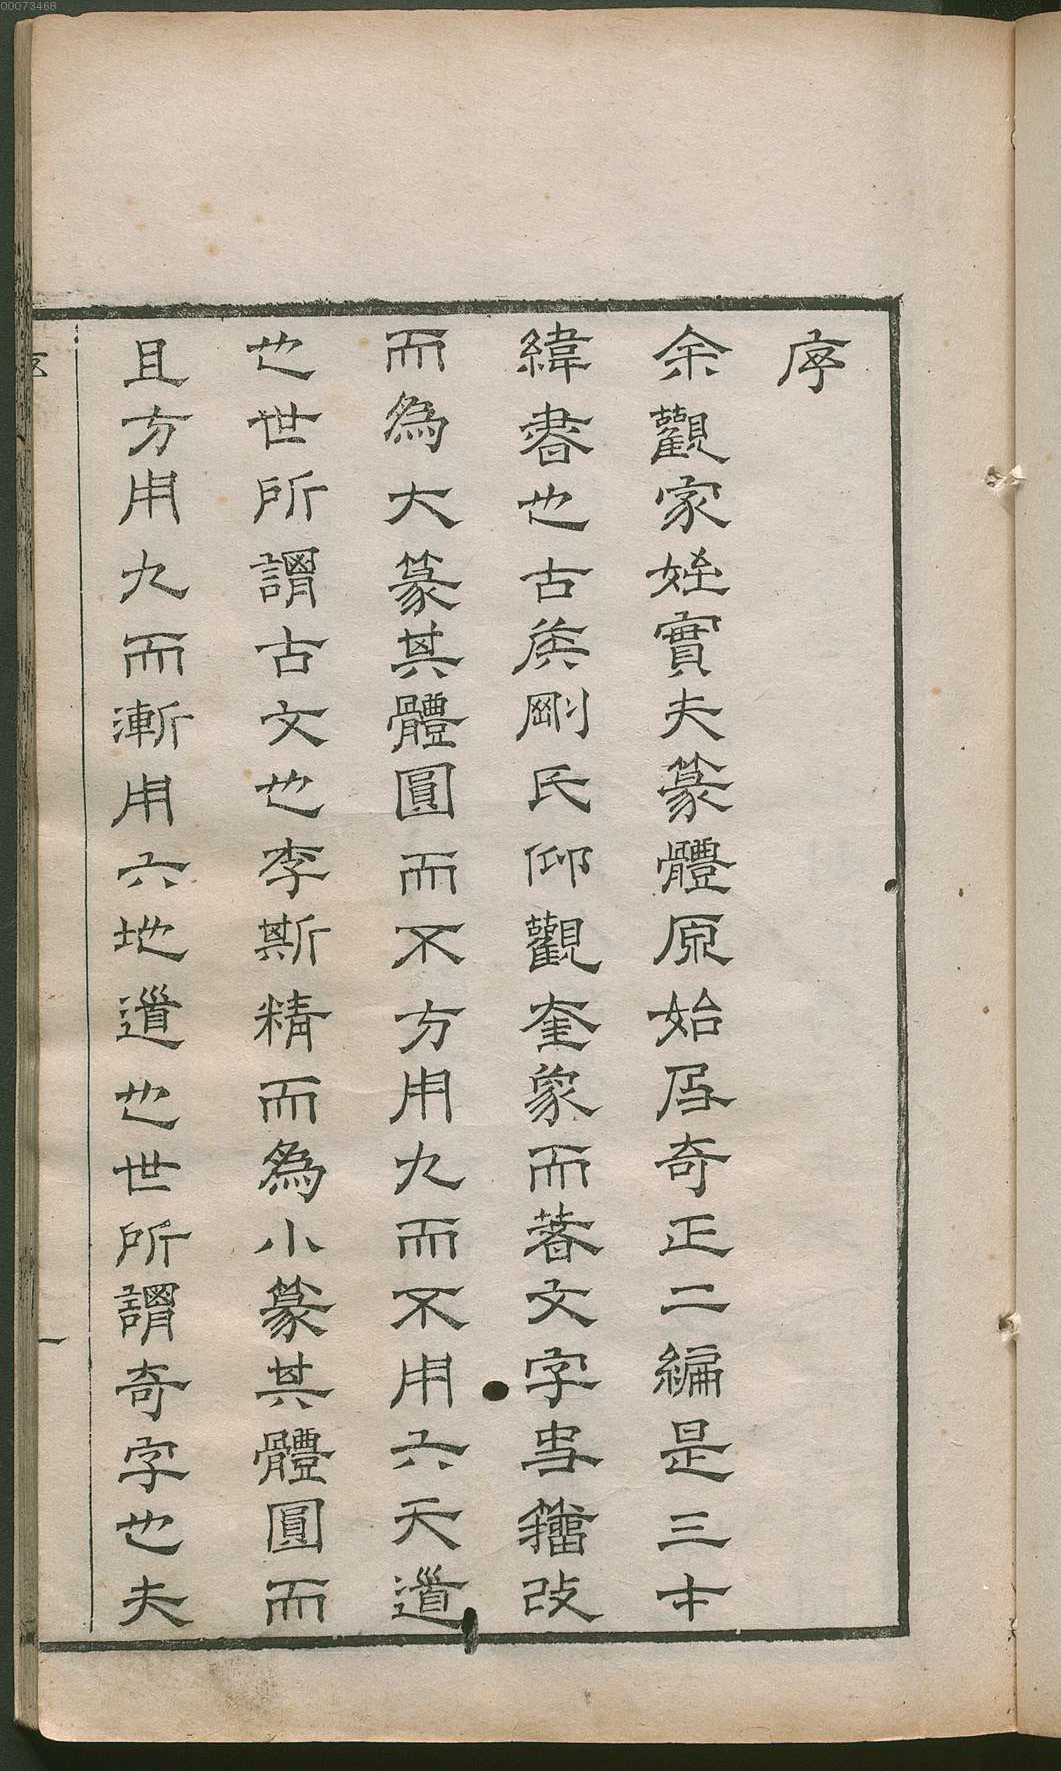 00073468
序
余觀家姪實夫篆體原始及奇正二編是三才
緯書也古矦剛氏仰觀奎象而著文字史籒改
而為大篆其體圓而不方用九而不用六天道
也世所謂古文也李斯精而為小篆其體圓而
且方用九而漸用六地道也世所謂奇字也夫
序
一